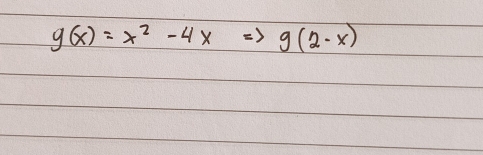 g(x) = x² - 4x => g(2-x)